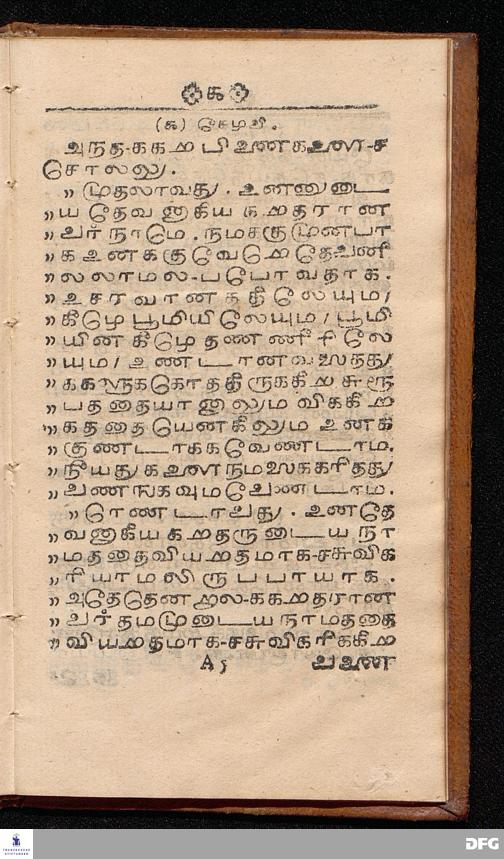 ௧
(௧) கேழவி.
அநத-ககறபினைகளை-ச
சொலலு.
„ முதலாவது. உனனுடை
„ ய தேவனாகிய கறததரான
„ வர் நாமே. நமககு முனபா
„ க உனககு வேறே தேவனி
„ லலாமல-பபோவதாக.
„ உசரவானததிலேயும/
„ கீழே பூமியிலேயும/ பூமி
„ யின கீழே தணணீரிலே
„ யும/ உணடானவஸதது
„ ககளுககொததிருககிற சுரூ
„ பததையானாலும விககிற
„ கததையெனகிலும உனக
„ குணடாககவேணடாம.
„ நீயதுகளைநமஸகரிதது
„ வணஙகவுமவேணடாம.
„ ரெணடாவது. உனதே
„ வனாகிய கறததருடைய நா
„ மததைவியறததமாக-சசுவிக
„ ரியாமலிருபபாயாக.
„ அதேதெனறால-ககறததரான
„ வர்தமமுடைய நாமததை
„ வியறததமாக-சசுவிகரிககிற
A 5 வனை
DFG